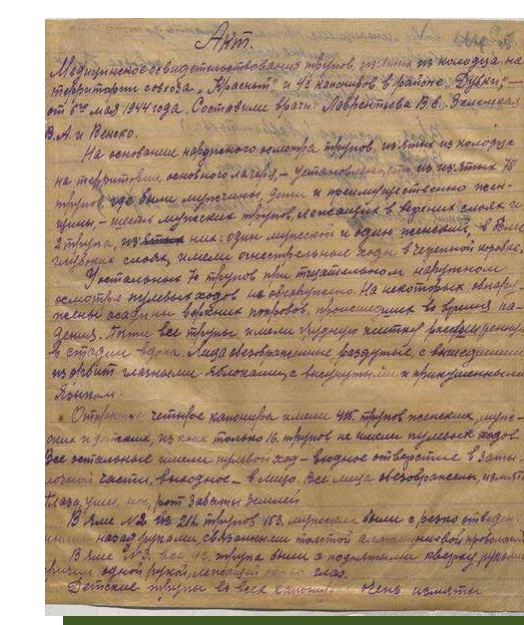 Акт.
Медицинское освидетельствования трупов, изъятых из колодца на
территории совхоза „Красный" и 4х капониров в районе „Дубки", –
от 6го мая 1944 года. Составили врачи: Лаврентьева В.Е.,
В.А. и
На основании наружного осмотра трупов, изъятых из колодца
на территории основного лагеря, – установлено, что из изъятых 78
трупов, где были мужчины, дети и преимущественно жен-
щины, – шесть мужских трупов, лежащих в верхних слоях и
2 трупа, из них: один мужской и один женский, в более
глубоких слоях, имели огнестрельные ходы в черепной коробке.
У остальных 70 трупов при тщательном наружном
осмотре пулевых ходов не обнаружено. На некоторых обнару-
жены ссадины верхних покровов, происшедших во время па-
дения. Почти все трупы имели грудную клетку расширенную
в стадии вдоха. Лица обезображенные, раздутые, с вышедшими
из орбит глазными яблоками, с высунутыми и прикушенными
языком.
Открытые четыре капонира имели 415 трупов женских, муж-
ских и детских, из коих только 16 трупов не имели пулевых ходов
Все остальные имели пулевой ход – входное отверстие в заты-
лочной части, выходное – в лицо. Все лица обезображены, измяты
глаза, уши, нос, рот забиты землей.
В яме №2 из 216 трупов 153 мужских были с резко отведен-
ными назад руками, связанными толстой проволокой
В яме №3. все трупа были с поднятыми кверху руками
одной рукой, лежащей около глаз.
Детские трупы во всех капонирах очень измяты